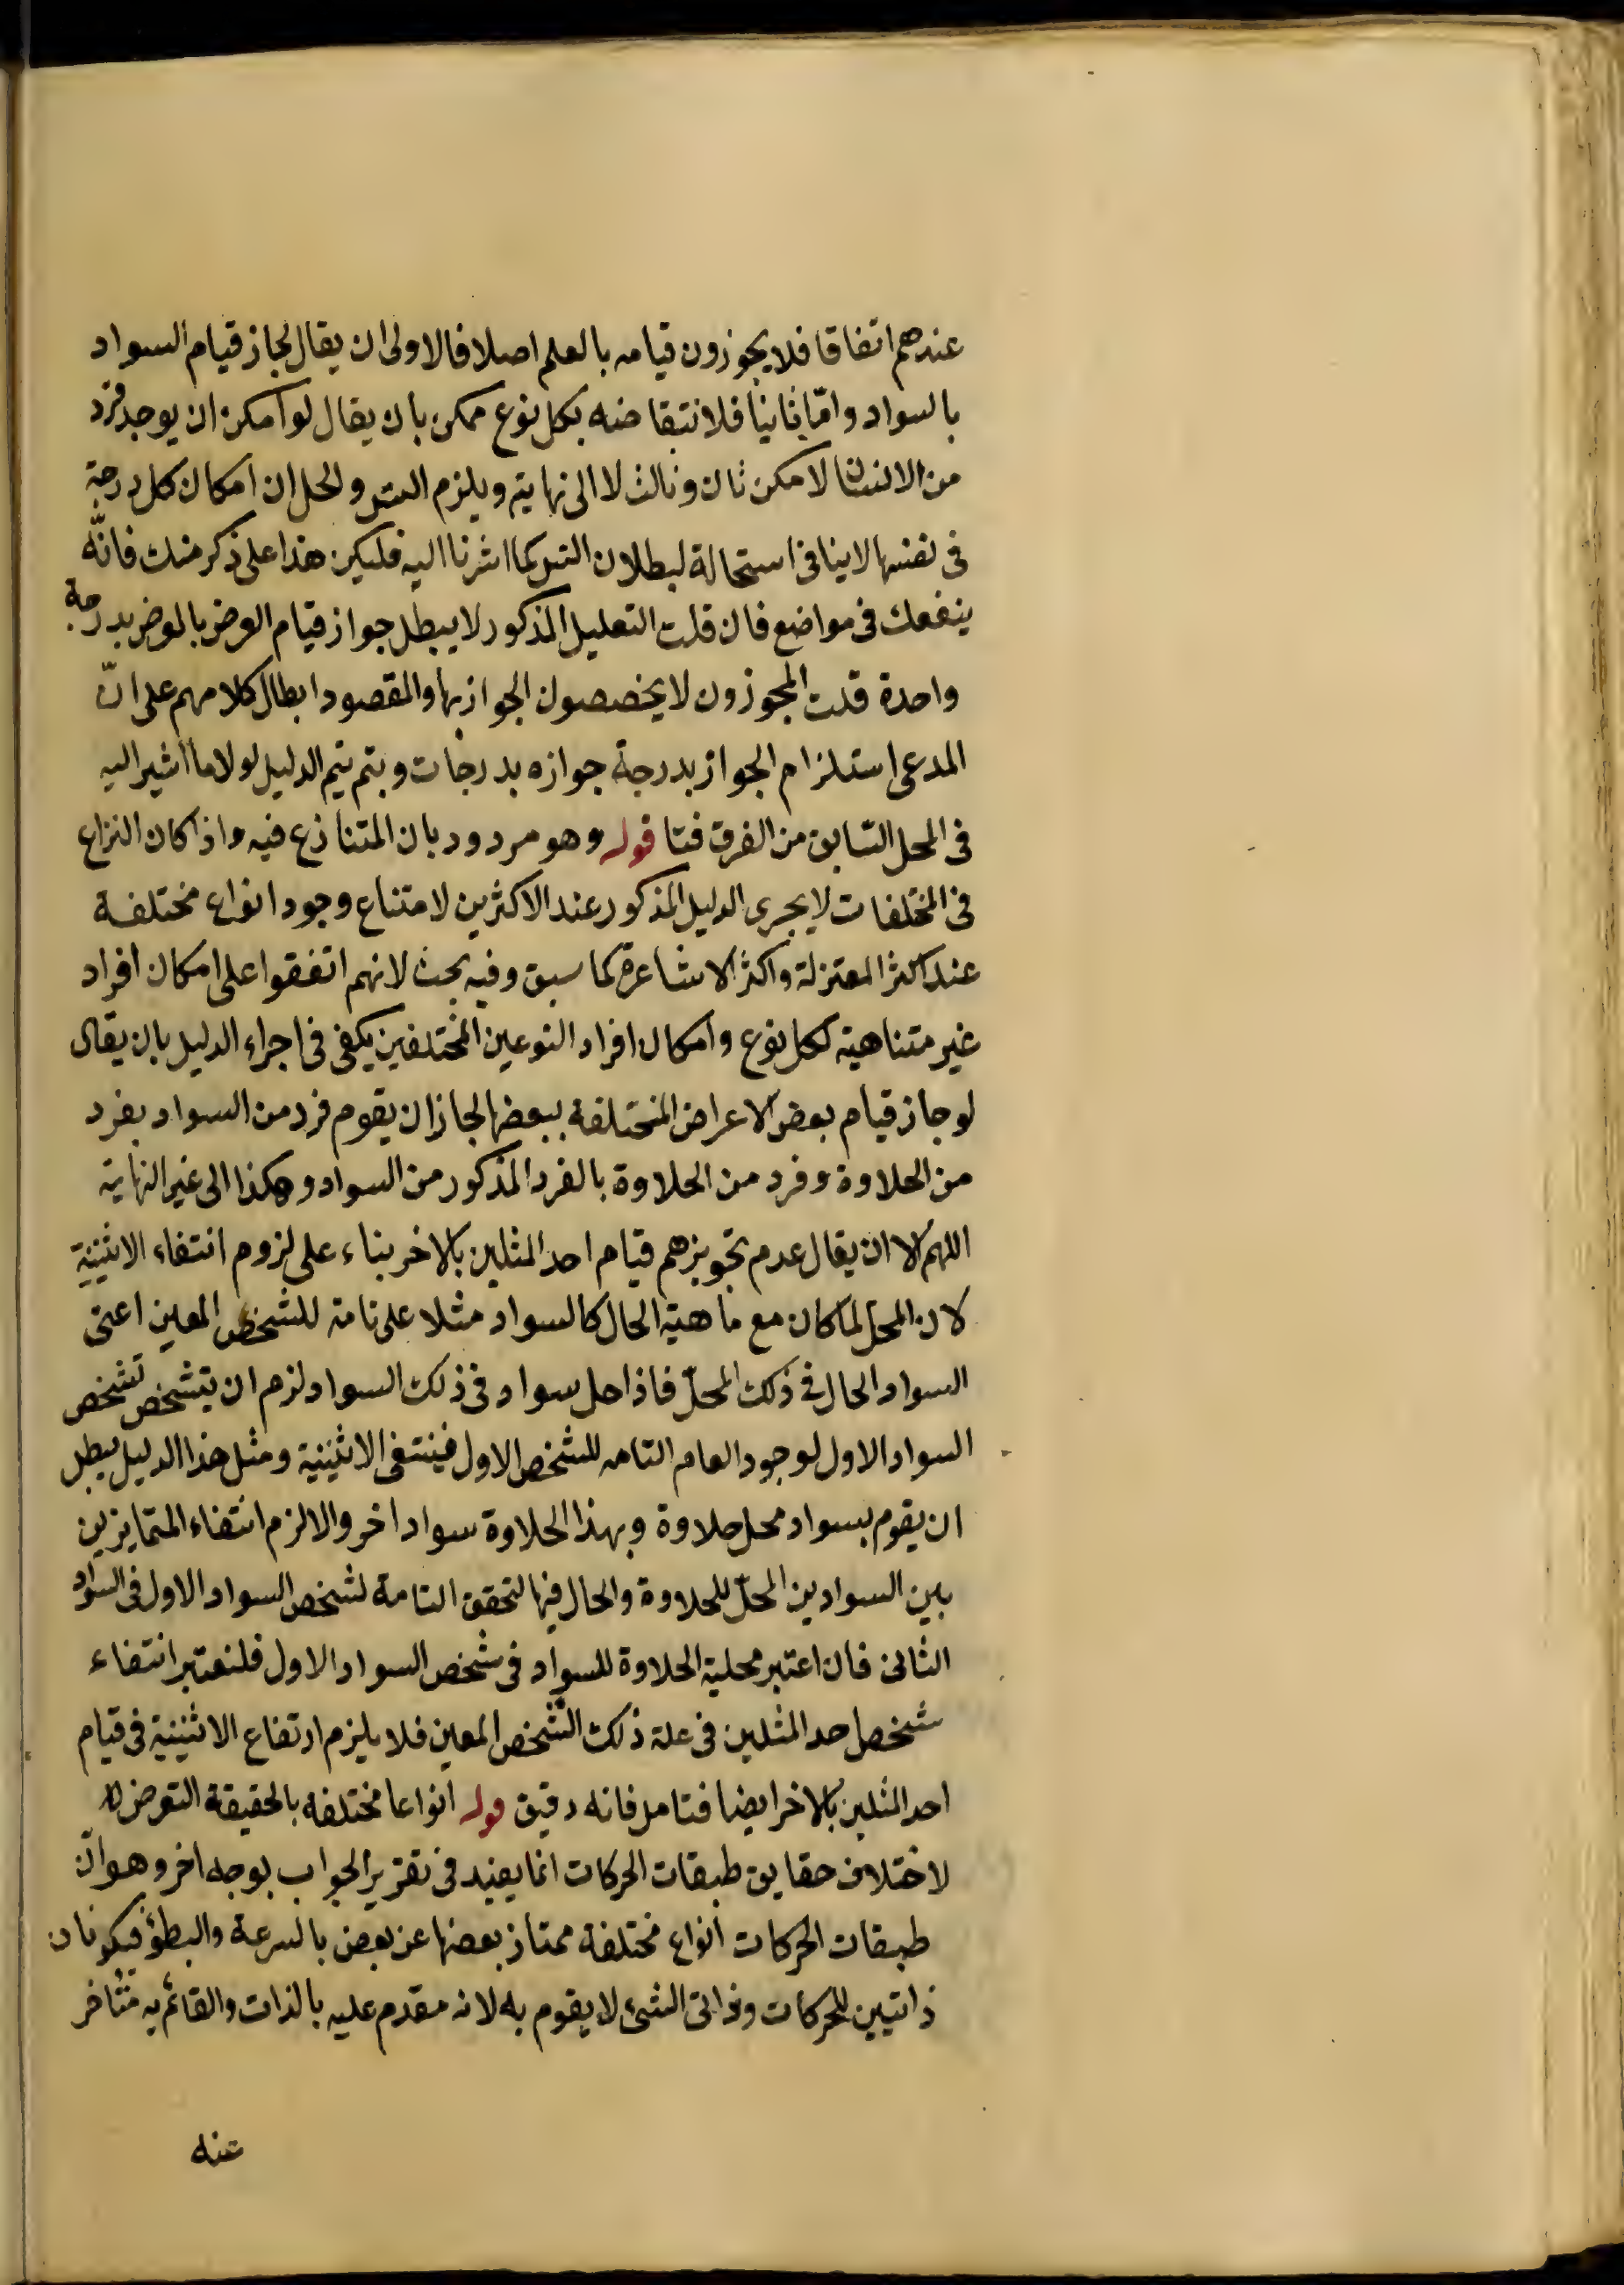 عندهم اتفاقا فلا يجوزون قيامه بالعلم اصلا فالاولى ان يقال لجاز قيام السواد
بالسواد وامّا ثانيا فلانتقاضه بكل نوع ممكن بان يقال لو امكن ان يوجد فرد
من الانسان لامكن ثان وثالث لا الى نهاية ويلزم التس والحل ان امكان كل درجة
فى نفسها لا ينافى استحالة لبطلان التس كما اشرنا اليه فليكن هذا على ذكر منك فانّه
ينفعك فى مواضع فان قلت التعليل المذكور لا يبطل جواز قيام العرض بالعرض بدرجة
واحدة قلت المجوزون لا يخصصون الجواز بها والمقصود ابطال كلامهم على انّ
المدعى استلزام الجواز بدرجة جوازه بدرجات وبتم يتم الدليل لولا ما اشير اليه
فى المحل السّابق من الفرق فتا قوله وهو مردود بان المتنازع فيه واذا كان النزاع
فى المختلفات لا يجرى الدليل المذكور عند الاكثرين لامتناع وجود انواع مختلفة
عند اكثر المعتزلة واكثر الاشاعرة كما سبق وفيه بحث لانهم اتفقوا على امكان افراد
غير متناهية لكل نوع وامكان افراد النوعين المختلفين يكفى فى اجراء الدليل بان يقال
لو جاز قيام بعض الاعراض المختلفة ببعضها لجاز ان يقوم فرد من السواد بفرد
من الحلاوة وفرد من الحلاوة بالفرد المذكور من السواد وهكذا الى غير النهاية
اللهم الا ان يقال عدم تجويزهم قيام احد المثلين بالاخر بناء على لزوم انتفاء الاثنينية
لان المحل لما كان مع ماهية الحال كالسواد مثلا علة تامة للشخص المعين اعنى
السواد الحال فى ذلك المحلّ فاذا حل سواد فى ذلك السواد لزم ان يتشخص تشخص
السواد الاول لوجود العام التامه للشخص الاول فينتفى الاثنينية ومثل هذا الدليل يبطل
ان يقوم بسواد محل حلاوة وبهذا الحلاوة سواد اخر والا لزم انتفاء المتمايزين
بين السوادين المحلّ للحلاوة والحال فيها لتحقق التامة لشخص السواد الاول فى السواد
الثانى فان اعتبر محلية الحلاوة للسواد فى شخص السواد الاول فلنعتبر انتفاء
شخص احد المثلين فى علة ذلك الشخص المعين فلا يلزم ارتفاع الاثنينية فى قيام
احد المثلين بالاخر ايضا فتامل فانه دقيق قوله انواعا مختلفه بالحقيقة التعرض
لاختلاف حقايق طبقات الحركات انما يفيد فى تقرير الجواب بوجه اخر وهو انّ
طبقات الحركات انواع مختلفة ممتاز بعضها عن بعض بالسرعة والبطؤ فيكونان
ذاتيين للحركات وذاتى الشئ لا يقوم به لانه مقدم عليه بالذات والقائم به متأخر
عنه